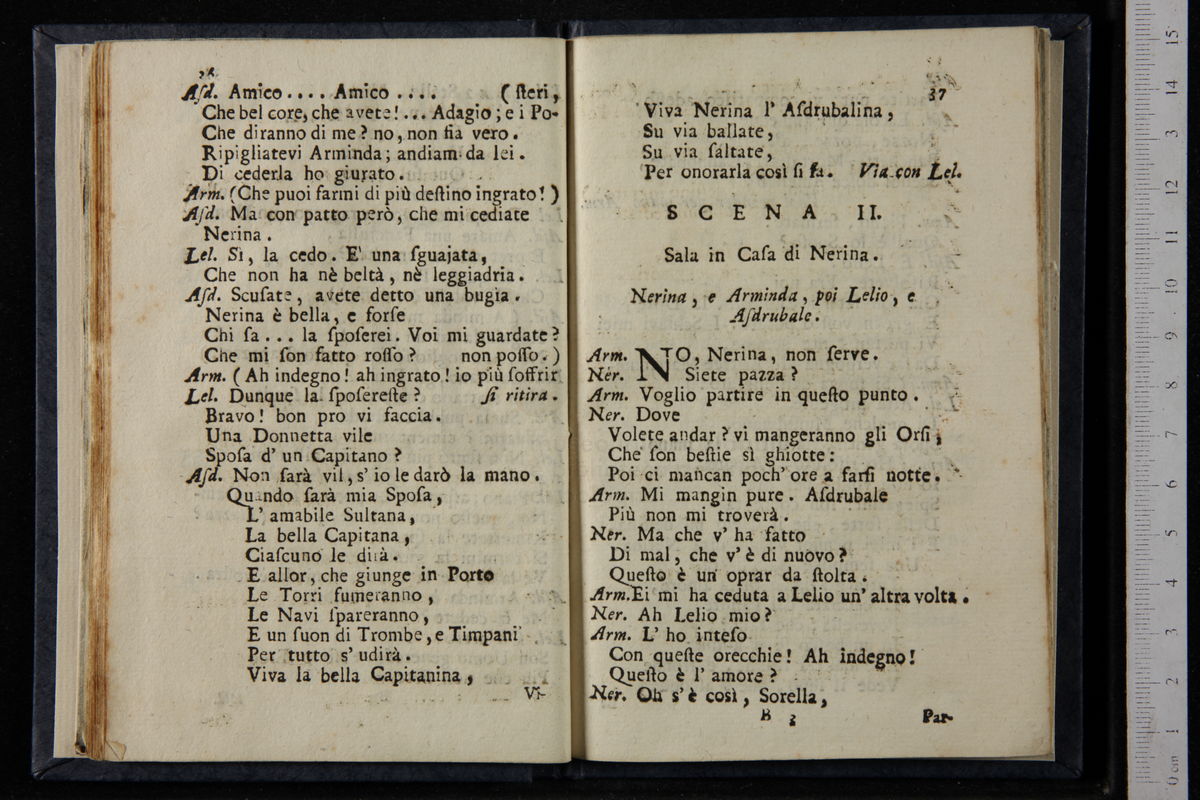 Aſd. Amico.... Amico.... (ſteri,
Che bel core, che avete!... Adagio; e i Po-
Che diranno di me? no, non ſia vero.
Ripigliatevi Arminda; andiam da lei.
Di cederla ho giurato.
Arm. (Che puoi farmi di più deſtino ingrato!)
Aſd. Ma con patto però, che mi cediate
Nerina.
Lel. Sì, la cedo. E' una ſguajata,
Che non ha nè beltà, nè leggiadria.
Aſd. Scuſate, avete detto una bugia.
Nerina è bella, e forſe
Chi ſa... la ſpoſerei. Voi mi guardate?
Che mi ſon fatto roſſo? non poſſo.)
Arm. (Ah indegno! ah ingrato! io più ſoffrir
Lel. Dunque la ſpoſereſte? ſi ritira.
Bravo! bon pro vi faccia.
Una Donnetta vile
Spoſa d' un Capitano?
Aſd. Non ſarà vil, s' io le darò la mano.
Quando ſarà mia Spoſa,
L' amabile Sultana,
La bella Capitana,
Ciaſcuno le dirà.
E allor, che giunge in Porto
Le Torri fumeranno,
Le Navi ſpareranno,
E un ſuon di Trombe, e Timpani
Per tutto s' udirà.
Viva la bella Capitanina,
Vi-
37
Viva Nerina l' Aſdrubalina,
Su via ballate,
Su via ſaltate,
Per onorarla così ſi fa. Via con Lel.
SCENA II.
Sala in Caſa di Nerina.
Nerina, e Arminda, poi Lelio, e
Aſdrubale.
Arm. NO, Nerina, non ſerve.
Ner. Siete pazza?
Arm. Voglio partire in queſto punto.
Ner. Dove
Volete andar? vi mangeranno gli Orſi,
Che ſon beſtie sì ghiotte:
Poi ci mancan poch' ore a farſi notte.
Arm. Mi mangin pure. Aſdrubale
Più non mi troverà.
Ner. Ma che v' ha fatto
Di mal, che v' è di nuovo?
Queſto è un oprar da ſtolta.
Arm. Ei mi ha ceduta a Lelio un' altra volta.
Ner. Ah Lelio mio?
Arm. L' ho inteſo
Con queſte orecchie! Ah indegno!
Queſto è l' amore?
Ner. Oh s' è così, Sorella,
B 3
Par-